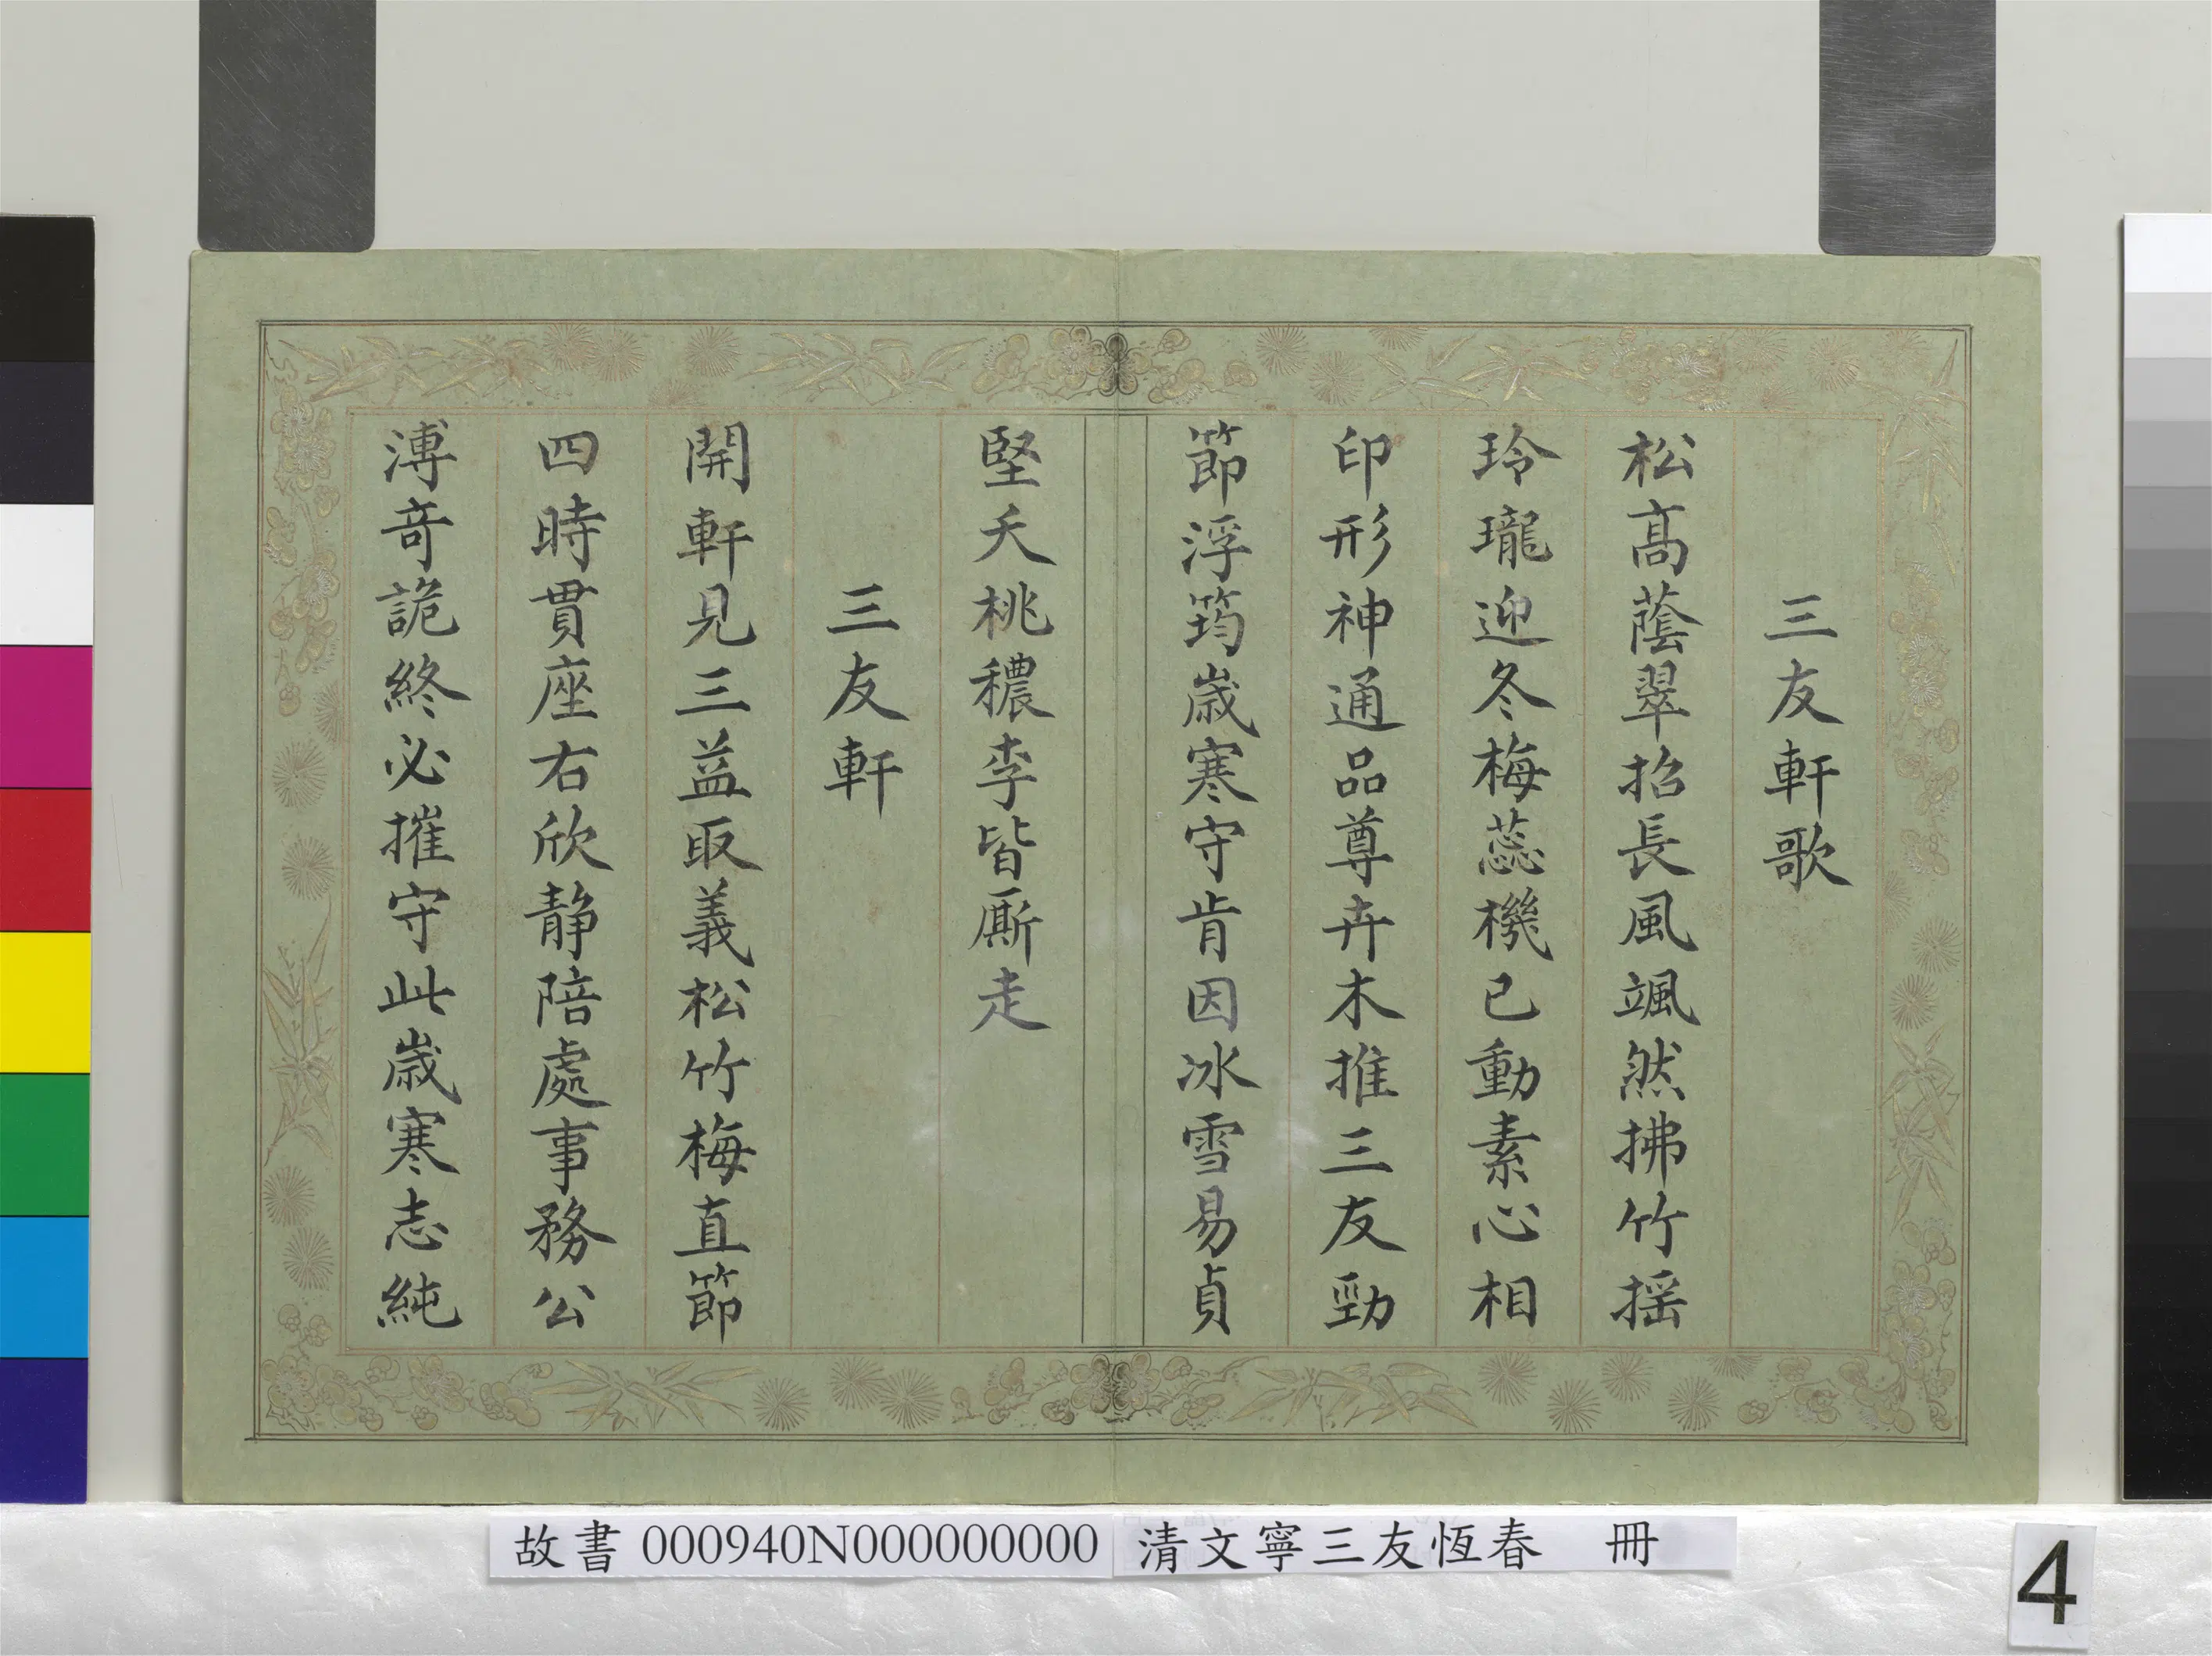 三友軒歌
松高蔭翠招長風颯然拂竹搖
玲瓏迎冬梅蕊機已動素心相
印形神通品尊卉木推三友勁
節浮筠歲寒守肯因冰雪易貞
堅夭桃穠李皆廝走
三友軒
開軒見三益取義松竹梅直節
四時貫座右欣靜陪處事務公
溥奇詭終必摧守此歲寒志純
故書 000940N000000000 清文寧三友恆春 冊
4